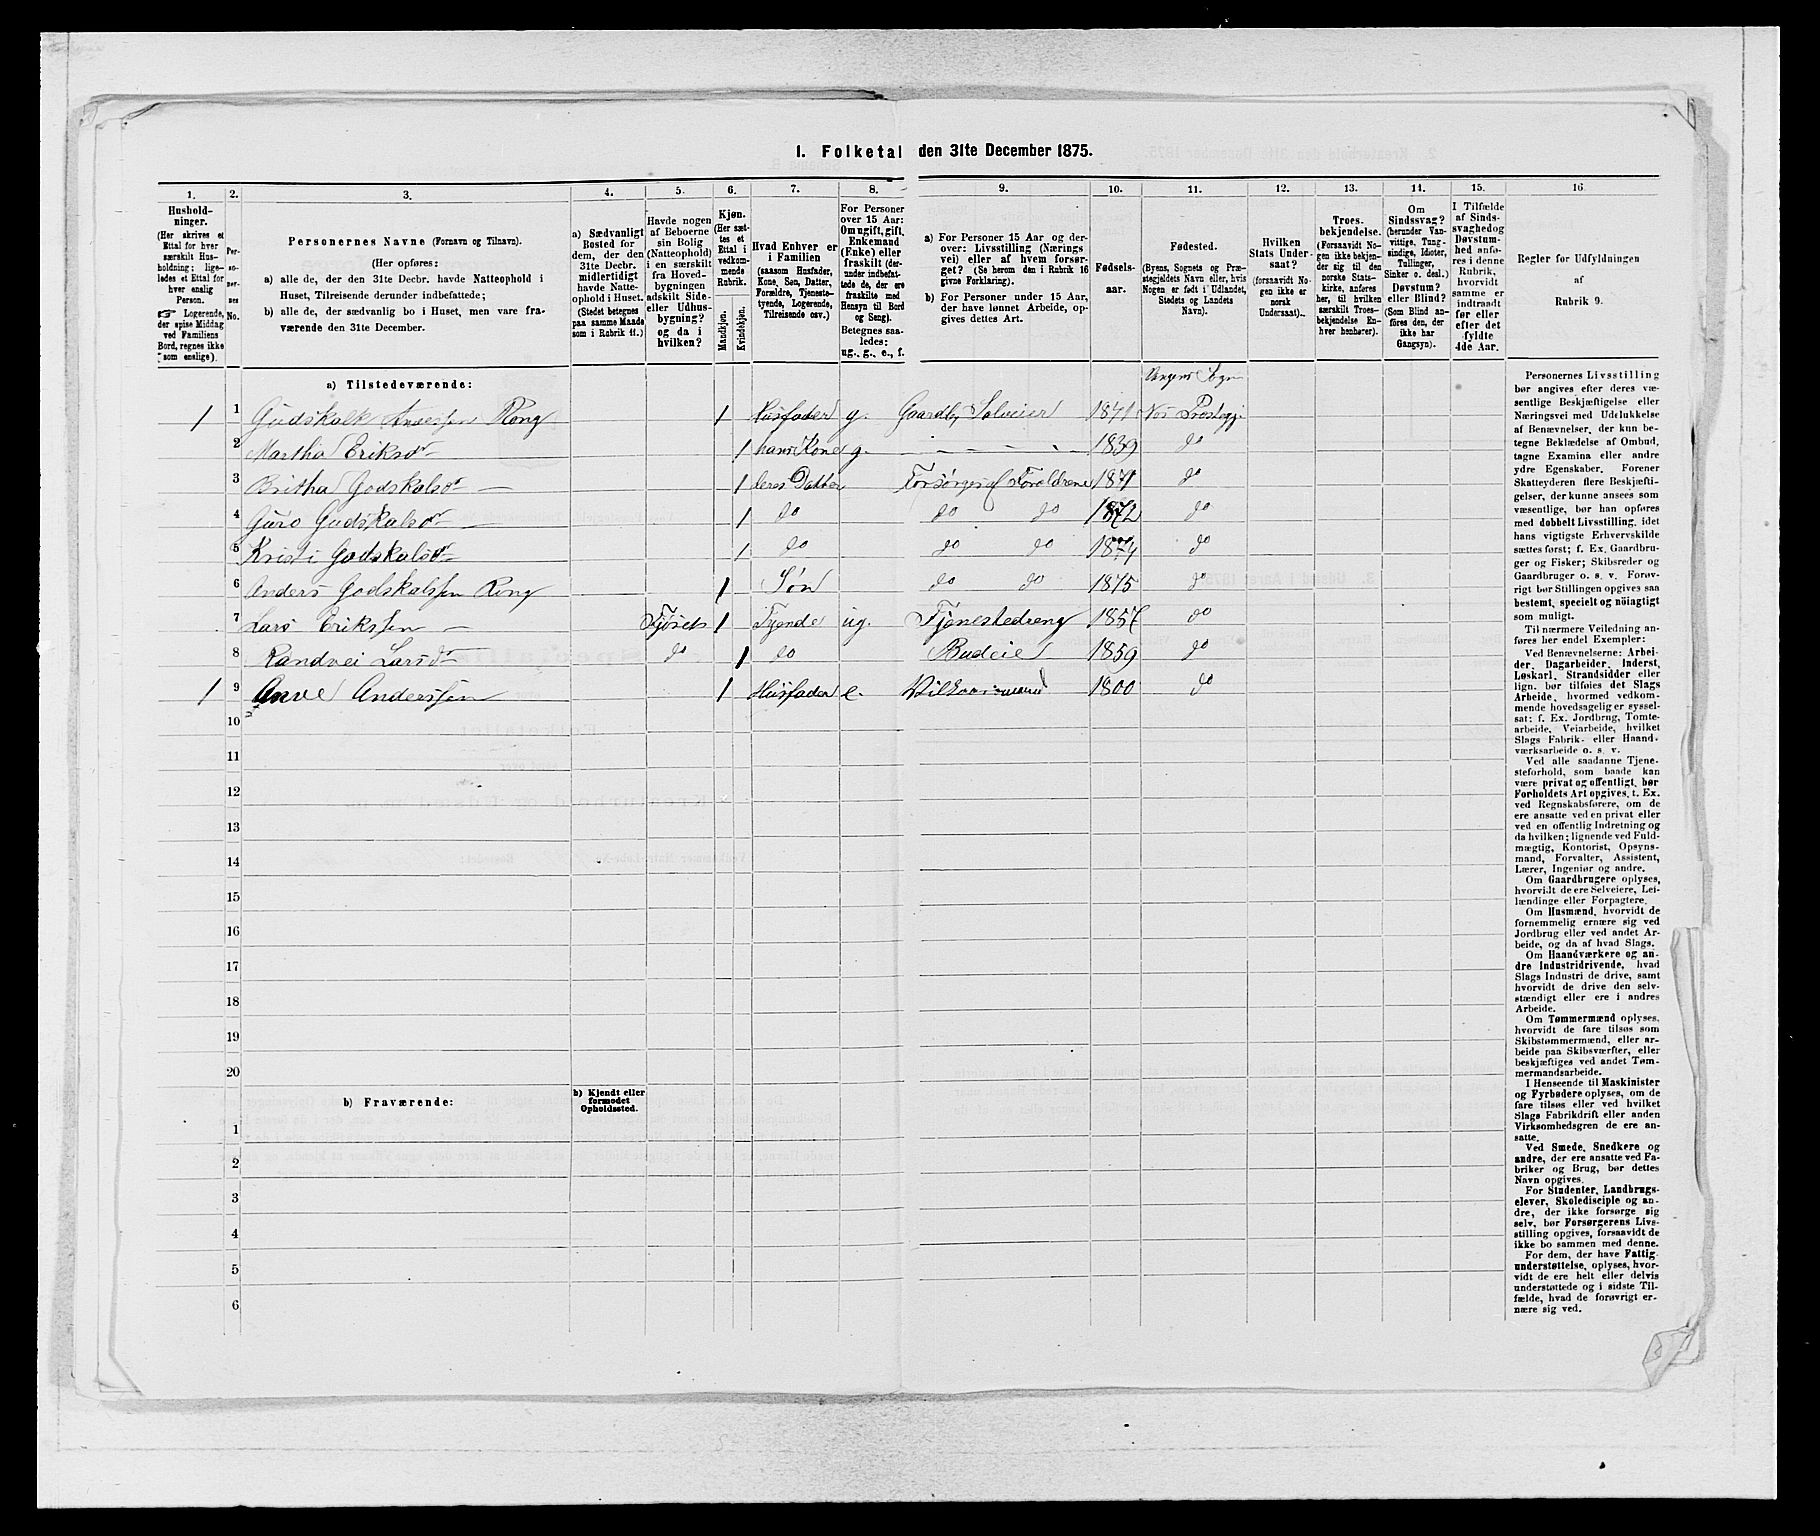 1. Folketal den 31te December 1875.
1. 2. 3. 4. 5. 6. 7. 8. 9. 10. 11. 12. 13. 14. 15. 16.
Hushold-
ninger.
(Her skrives et
Ettal for hver
særskilt Hus-
holdning; lige-
ledes et Ettal for
hver enslig
Person.
☞ Logerende,
der spise Middag
ved Familiens
Bord, regnes ikke
som enslige).
Per-
so-
ner-
nes
No.
Personernes Navne (Fornavn og Tilnavn).
(Her opføres:
a) alle de, der den 31te Decbr. havde Natteophold i
Huset, Tilreisende derunder indbefattede;
b) alle de, der sædvanlig bo i Huset, men vare fra-
værende den 31te December.
a) Sædvanligt
Bosted for
dem, der den
31te Decbr.
midlertidigt
havde Natte-
ophold i Huset.
(Stedet betegnes
paa samme Maade
som i Rubrik 11.)
Havde nogen
af Beboerne
sin Bolig
(Natteophold)
i en særskilt
fra Hoved-
bygningen
adskilt Side-
eller Udhus-
bygning?
og da i
hvilken?
Kjøn.
(Her sæt-
tes et
Ettal i
vedkom-
mende
Rubrik.
Mandkjøn.
Kvindekjøn.
Hvad Enhver er
i Familien
(saasom Husfader,
Kone, Søn, Datter,
Forældre, Tjeneste-
tyende, Logerende,
Tilreisende osv.)
For Personer
over 15 Aar:
Om ugift, gift,
Enkemand
(Enke) eller
fraskilt (der-
under indbefat-
tede de, der ere
fraskilte med
Hensyn til Bord
og Seng).
Betegnes saa-
ledes:
ug., g., e., f.
a) For Personer 15 Aar og der-
over: Livsstilling (Nærings
vei) eller af hvem forsør-
get? (Se herom den i Rubrik 16
givne Forklaring).
b) For Personer under 15 Aar,
der have lønnet Arbeide, op-
gives dettes Art.
Fødsels-
aar.
Fødested.
(Byens, Sognets og Præ-
stegjeldets Navn eller, hvis
Nogen er født i Udlandet,
Stedets og Landets
Navn).
Hvilken
Stats Under-
saat?
(forsaavidt No-
gen ikke er
norsk
Undersaat).
Troes-
bekjendelse.
(Forsaavidt No-
gen ikke bekjen-
der sig til den
norske Stats-
kirke, anføres
her, til hvilken
særskilt Troes-
bekjendelse En-
hver henhører).
Om
Sindssvag?
(herunder Van-
vittige, Tung-
sindige, Idioter,
Tullinger,
Sinker o. desl.)
Døvstum?
eller Blind?
(Som Blind an-
føres den, der
ikke har
Gangsyn).
I Tilfælde
af Sinds-
svaghed og
Døvstum-
hed anfø-
res i denne
Rubrik,
hvorvidt
samme er
indtraadt
før eller
efter det
fyldte
4de Aar.
Regler for Udfyldningen
af
Rubrik 9.
a) Tilstedeværende:
Vangens Sogn
1 1 Gudskalk Anderssen Rong 1 Husfader g. Gaardb. Selveier 1841 Vos Prestegj.
2 Martha Eriksdr 1 hans Kone g. — — — 1839 do
3 Britha Godskalsdr — 1 deres Datter Forsørges af Forældrene 1871 do
4 Guro Gudskalsdr — 1 do do do 1872 do
5 Kristi Godskalsdr — 1 do do do 1874 do
6 Anders Godskalssen Rong 1 Søn do do 1875 do
7 Lars Erikssen — Fjøset 1 Tjende ug. Tjenestedreng 1857 do
8 Randvei Larsdr do 1 do Budeie 1859 do
1 9 Anve Anderssen 1 Husfader e. Vilkaarsmand 1800 do
10
11
12
13
14
15
16
17
18
19
20
b) Fraværende:
b) Kjendt eller
formodet
Opholdssted.
1
2
3
4
5
6
Personernes Livsstilling
bør angives efter deres væ-
sentlige Beskjæftigelse eller
Næringsvei med Udelukkelse
af Benævnelser, der kun be-
tegne Beklædelse af Ombud,
tagne Examina eller andre
ydre Egenskaber. Forener
Skatteyderen flere Beskjæfti-
gelser, der kunne ansees som
væsentlige, bør han opføres
med dobbelt Livsstilling, idet
hans vigtigste Erhvervskilde
sættes først; f. Ex. Gaardbru-
ger og Fisker; Skibsreder og
Gaardbruger o. s. v. Forøv-
rigt bør Stillingen opgives saa
bestemt, specielt og nöiagtigt
som muligt.
Til nærmere Veiledning an-
føres her endel Exempler:
Ved Benævnelserne: Arbei-
der, Dagarbeider, Inderst,
Løskarl, Strandsidder eller
lign. bør tilføies det Slags
Arbeide, hvormed vedkom-
mende hovedsagelig er syssel-
sat; f. Ex. Jordbrug, Tomte-
arbeide, Veiarbeide, hvilket
Slags Fabrik- eller Haand-
værksarbeide o. s. v.
Ved alle saadanne Tjene-
steforhold, som baade kan
være privat og offentligt, bør
Forholdets Art opgives, t. Ex.
ved Regnskabsførere, om de
ere ansatte ved en privat eller
ved en offentlig Indretning og
da hvilken; lignende ved Fuld-
mægtig, Kontorist, Opsyns-
mand, Forvalter, Assistent,
Lærer, Ingeniør og andre.
Om Gaardbrugere oplyses,
hvorvidt de ere Selveiere, Lei-
lændinge eller Forpagtere.
Om Husmænd, hvorvidt de
fornemmelig ernære sig ved
Jordbrug eller ved andet Ar-
beide, og da af hvad Slags.
Om Haandværkere og an-
dre Industridrivende, hvad
Slags Industri de drive, samt
hvorvidt de drive den selv-
stændigt eller ere i andres
Arbeide.
Om Tømmermænd oplyses,
hvorvidt de fare tilsøs som
Skibstømmermænd, eller ar-
beide paa Skibsværfter, eller
beskjæftiges ved andet Tøm-
mermandsarbeide.
I Henseende til Maskinister
og Fyrbødere oplyses, om de
fare tilsøs eller ved hvilket
Slags Fabrikdrift eller anden
Virksomhedsgren de ere an-
satte.
Ved Smede, Snedkere og
andre, der ere ansatte ved Fa-
briker og Brug, bør dettes
Navn opgives.
For Studenter, Landbrugs-
elever, Skoledisciple og an-
dre, der ikke forsørge sig
selv, bør Forsørgerens Livs-
stilling opgives, forsaavidt de
ikke bo sammen med denne.
For dem, der have Fattig-
understøttelse, oplyses, hvor-
vidt de ere helt eller delvis
understøttede og i sidste Til-
fælde, hvad de forøvrigt er-
nære sig ved.